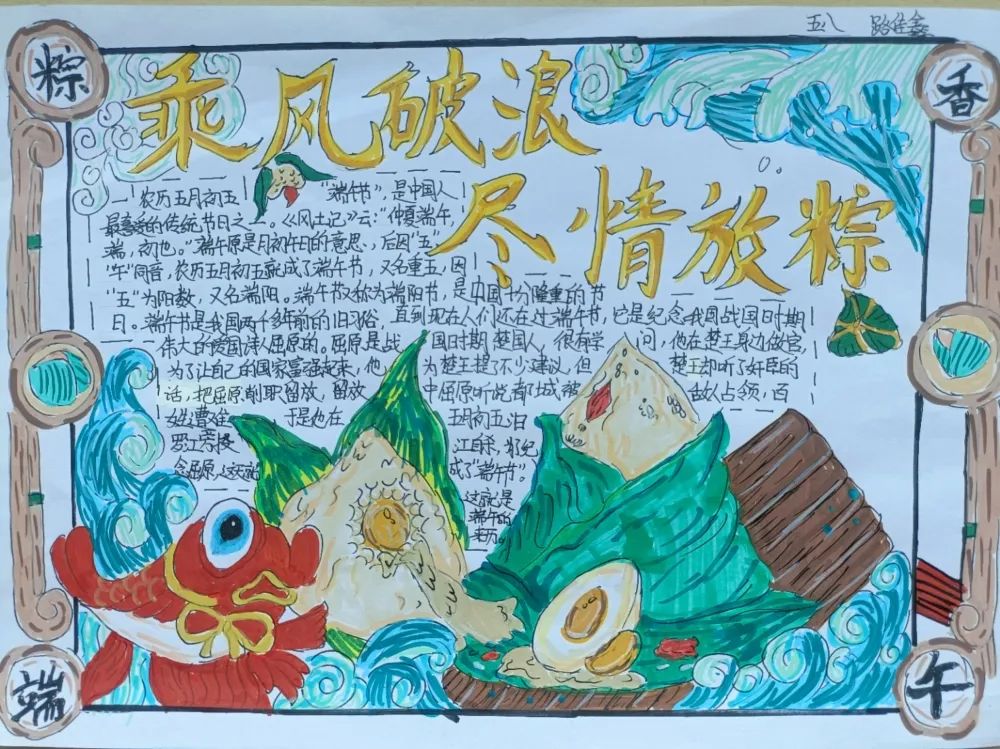 五八 路佳鑫
粽
香
乘风破浪
尽情放粽
农历五月初五 "端午节",是中国人
最喜爱的传统节日之一。《风土记》云:"仲夏端午,
端,初也。"端午原是月初午日的意思,后因"五"
"午"同音,农历五月初五就成了端午节,又名重五,因
"五"为阳数,又名端阳。端午节又称为端阳节,是中国十分隆重的节
日。端午节是我国两千多年前的旧习俗,直到现在人们还在过端午节,它是纪念我国战国时期
伟大的爱国诗人屈原的。屈原是战 国时期楚国人,很有学 问,他在楚王身边做官,
为了让自己的国家富强起来,他 为楚王提了不少建议,但 楚王却听了奸臣的
话,把屈原削职留放,留放 中屈原听说都城被 敌人占领,百
姓遭难 于是他在 五月初五汨
罗江旁投 江自杀,为了纪
念屈原,这天就 成了"端午节"。
这就是
端午的
来历。
端
午